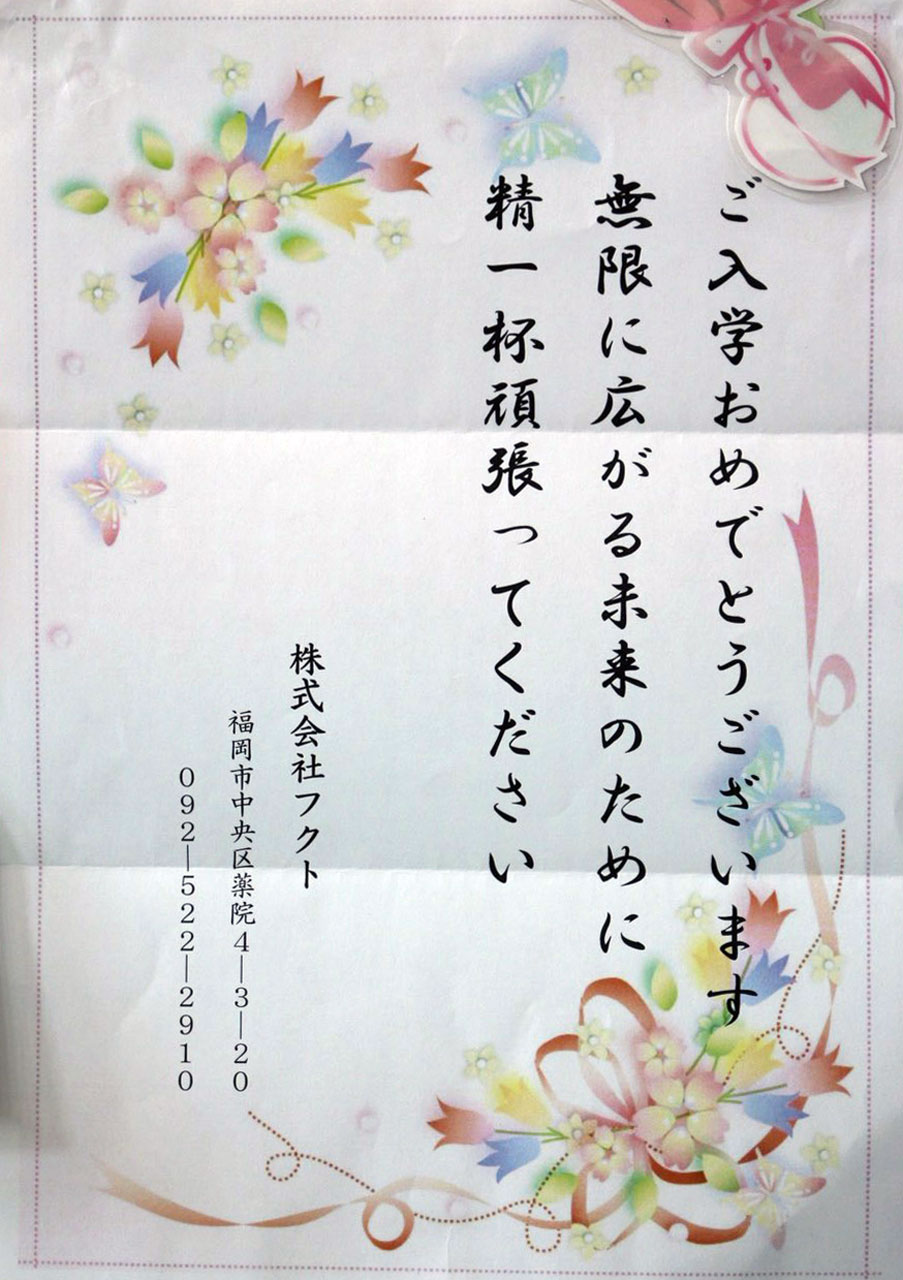 ご入学おめでとうございます
無限に広がる未来のために
精一杯頑張ってください
株式会社フクト
福岡市中央区薬院4―3―20
092―522―2910